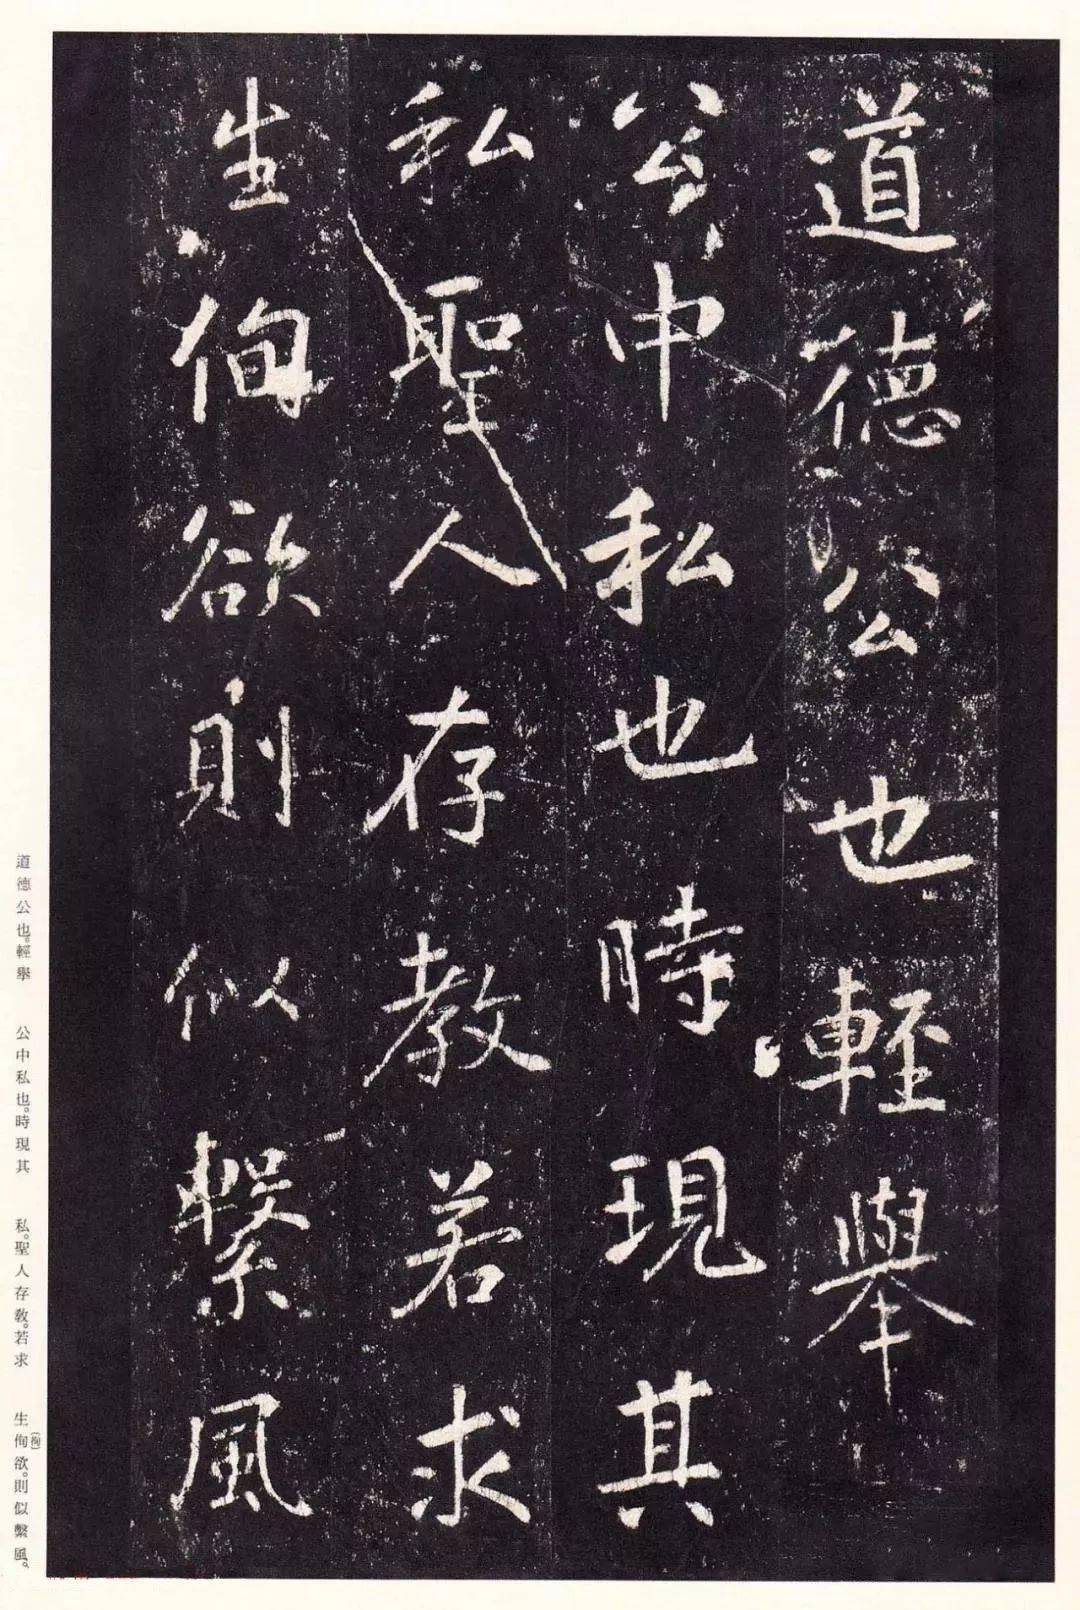 道德公也輕舉
公中私也時現其
私聖人存教若求
生徇欲則似繫風
道德公也。輕舉 公中私也。時現其 私。聖人存教。若求 生徇(徇)欲。則似繫風。